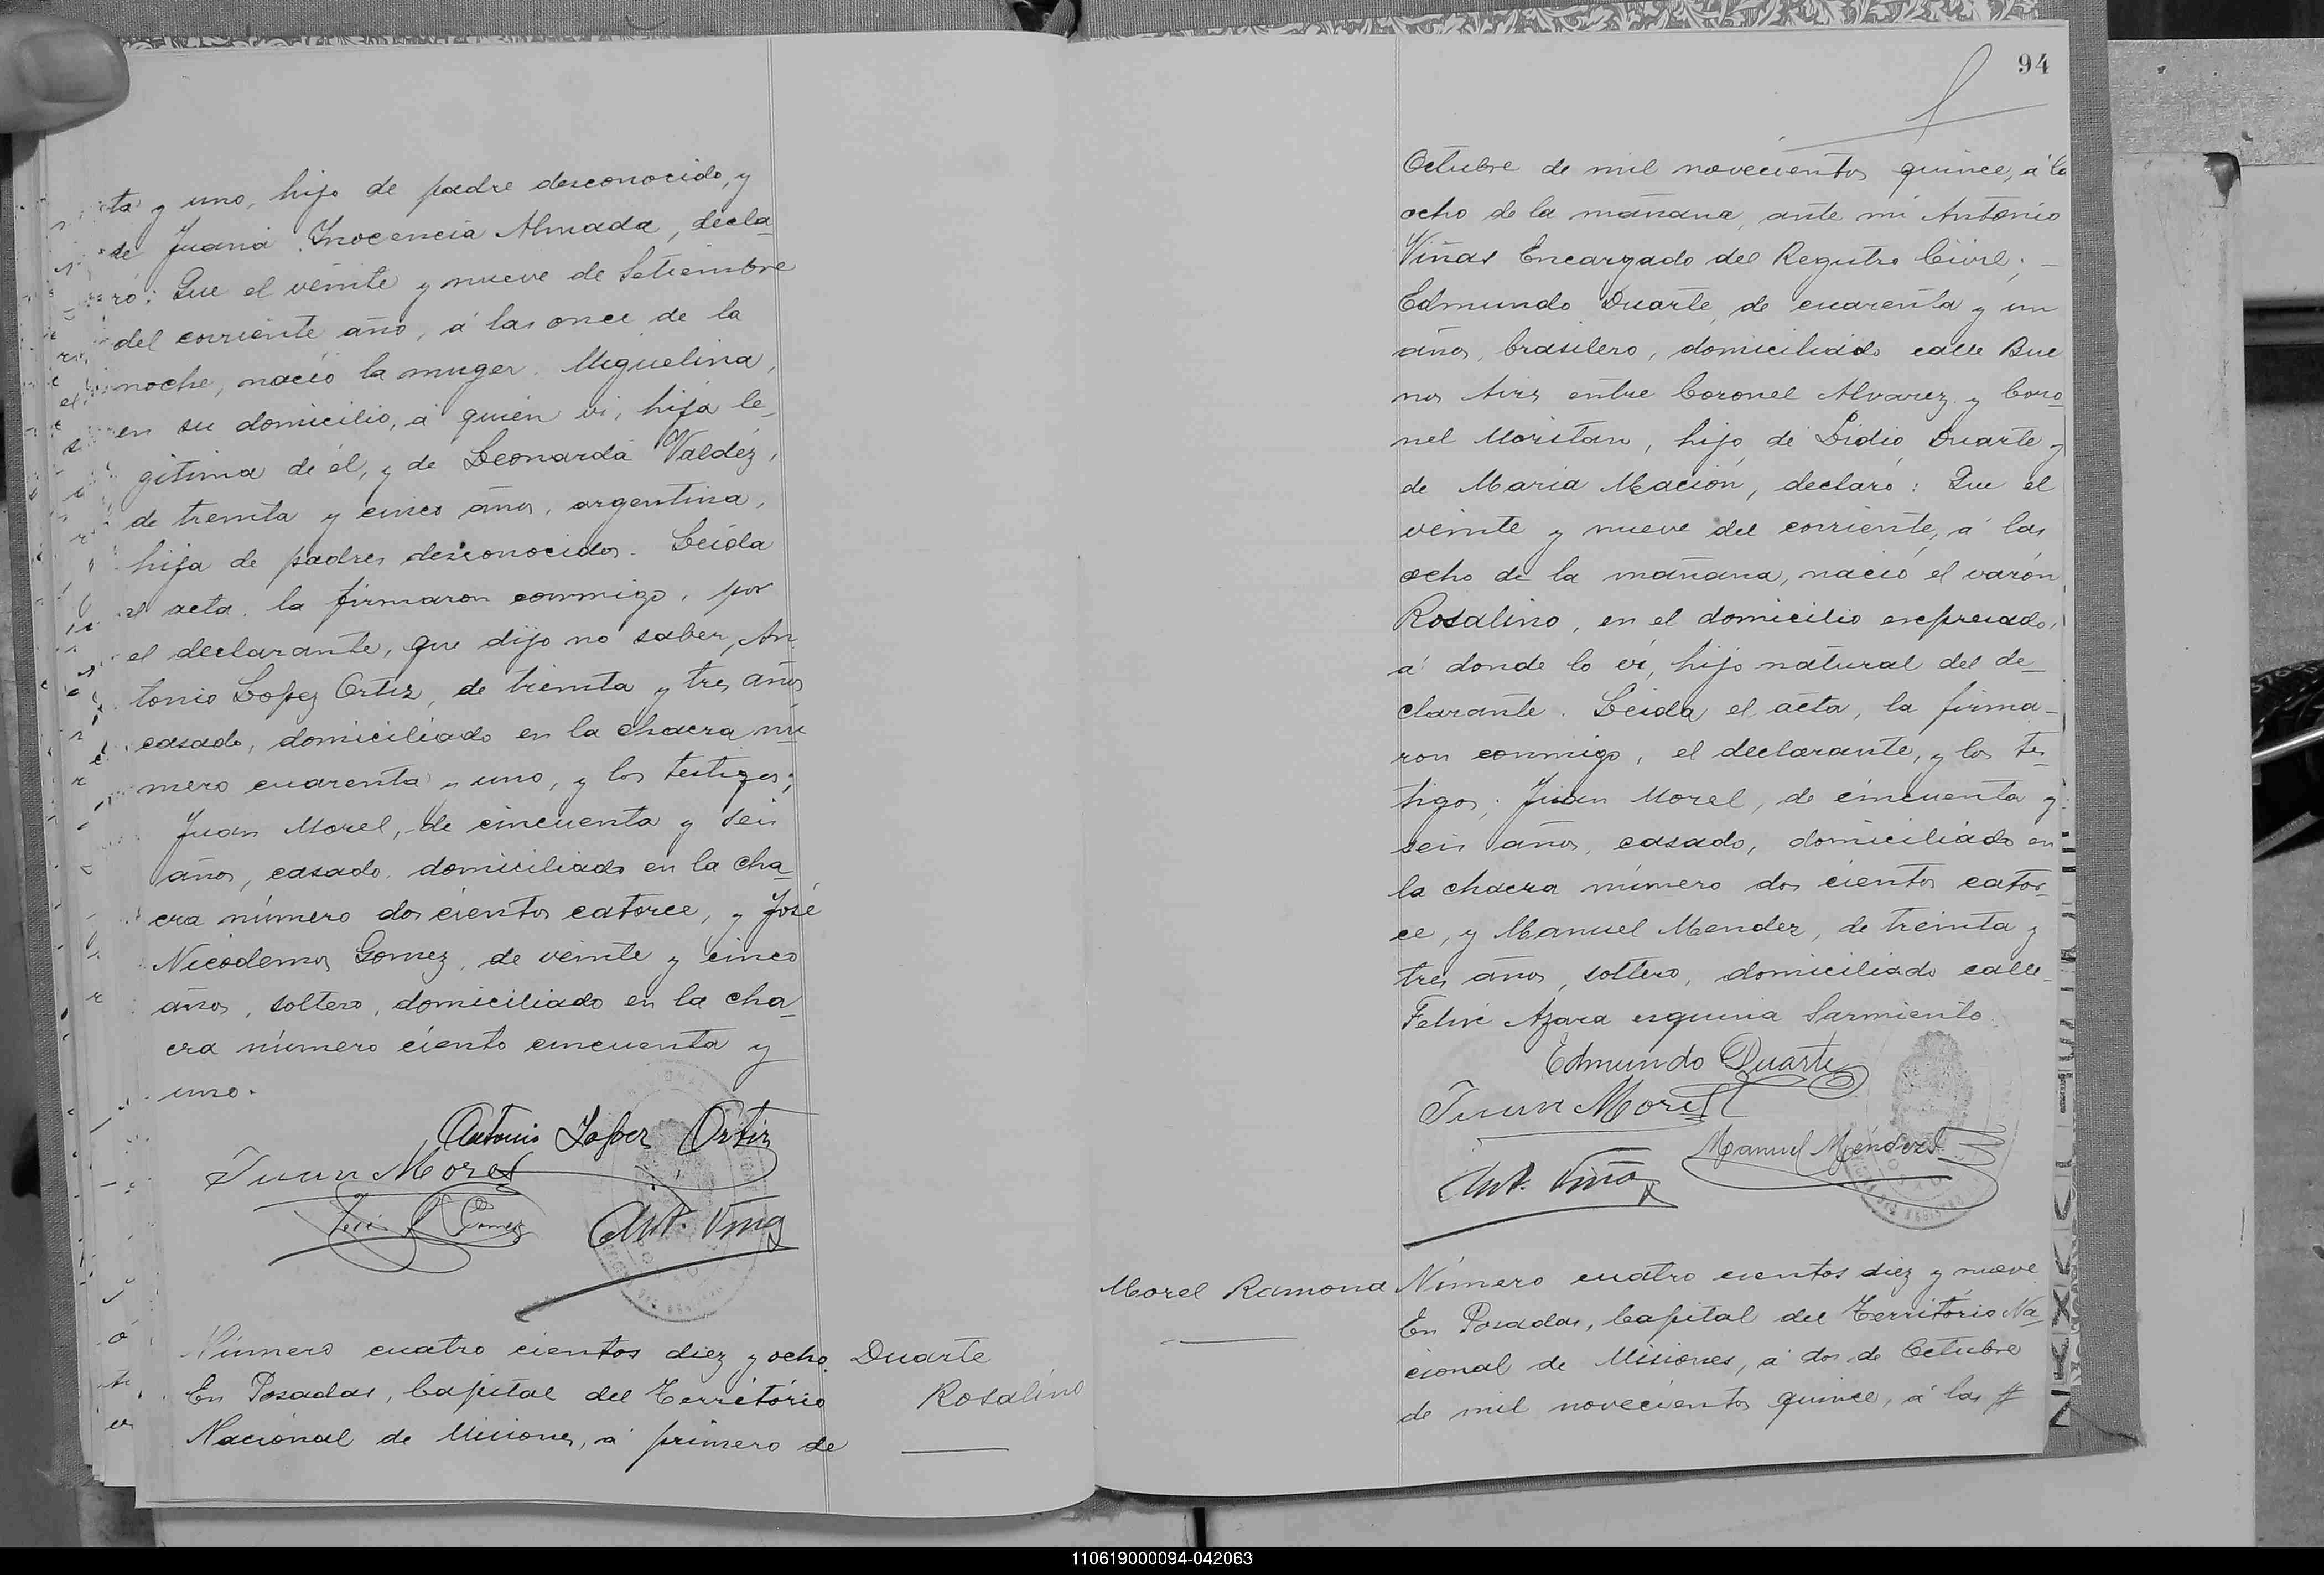 ta y uno, hijo de padre desconocido, y
de Juana Inocencia Almada, decla-
ró: Que el veinte y nueve de Setiembre
del corriente año, á las once de la
noche, nació la muger Miguelina,
en su domicilio, á quién vi, hija le-
gitima de él, y de Leonarda Valdéz,
de treinta y cinco años, argentina,
hija de padres desconocidos. Leida
el acta, la firmaron conmigo, por
el declarante, que dijo no saber, An-
tonio Lopez Ortiz, de treinta y tres años
casado, domiciliado en la chacra nú-
mero cuarenta y uno, y los testigos;
Juan Morel, de cincuenta y seis
años, casado, domiciliado en la cha-
cra número dos cientos catorce, y José
Nicodemos Gomez, de veinte y cinco
años, soltero, domiciliado en la cha-
cra número ciento cincuenta y
uno.
Antonio Lopez Ortiz
Juan Morel
José N Gomez
Ant. Viña
Número cuatro cientos diez y ocho.
En Posadas, Capital del Território
Nacional de Misiones, á primero de
Duarte
Rosalino
94
Octubre de mil novecientos quince, á la
ocho de la mañana, ante mi Antonio
Viñas Encargado del Registro Civil;
Edmundo Duarte, de cuarenta y un
años, brasilero, domiciliado calle Bue
nos Aires entre Coronel Alvarez y Coro-
nel Moritan, hijo de Lidio Duarte y
de Maria Mación, declaró: Que el
veinte y nueve del corriente, á las
ocho de la mañana, nació el varón
Rosalino, en el domicilio expresado,
á donde lo vi, hijo natural del de-
clarante. Leida el acta, la firma-
ron conmigo, el declarante, y los tes-
tigos; Juan Morel, de cincuenta y
seis años, casado, domiciliado en
la chacra número dos cientos cator-
ce, y Manuel Mendez, de treinta y
tres años, soltero, domiciliado calle
Felix Azara esquina Sarmiento.
Edmundo Duarte
Juan Morel
Manuel Mendez
Ant. Viña
Morel Ramona
Número cuatro cientos diez y nueve
En Posadas, Capital del Território Na-
cional de Misiones, á dos de Octubre
de mil novecientos quince, á las #
110619000094-042063